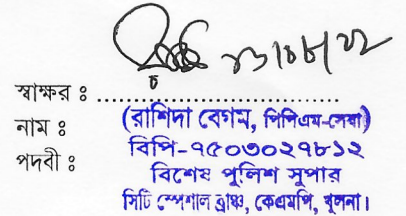 স্বাক্ষর ঃ ........................................
নাম ঃ (রাশিদা বেগম, পিপিএম-সেবা)
পদবী ঃ বিপি-৭৫০৩০২৭৮১২
বিশেষ পুলিশ সুপার
সিটি স্পেশাল ব্রাঞ্চ, কেএমপি, খুলনা।